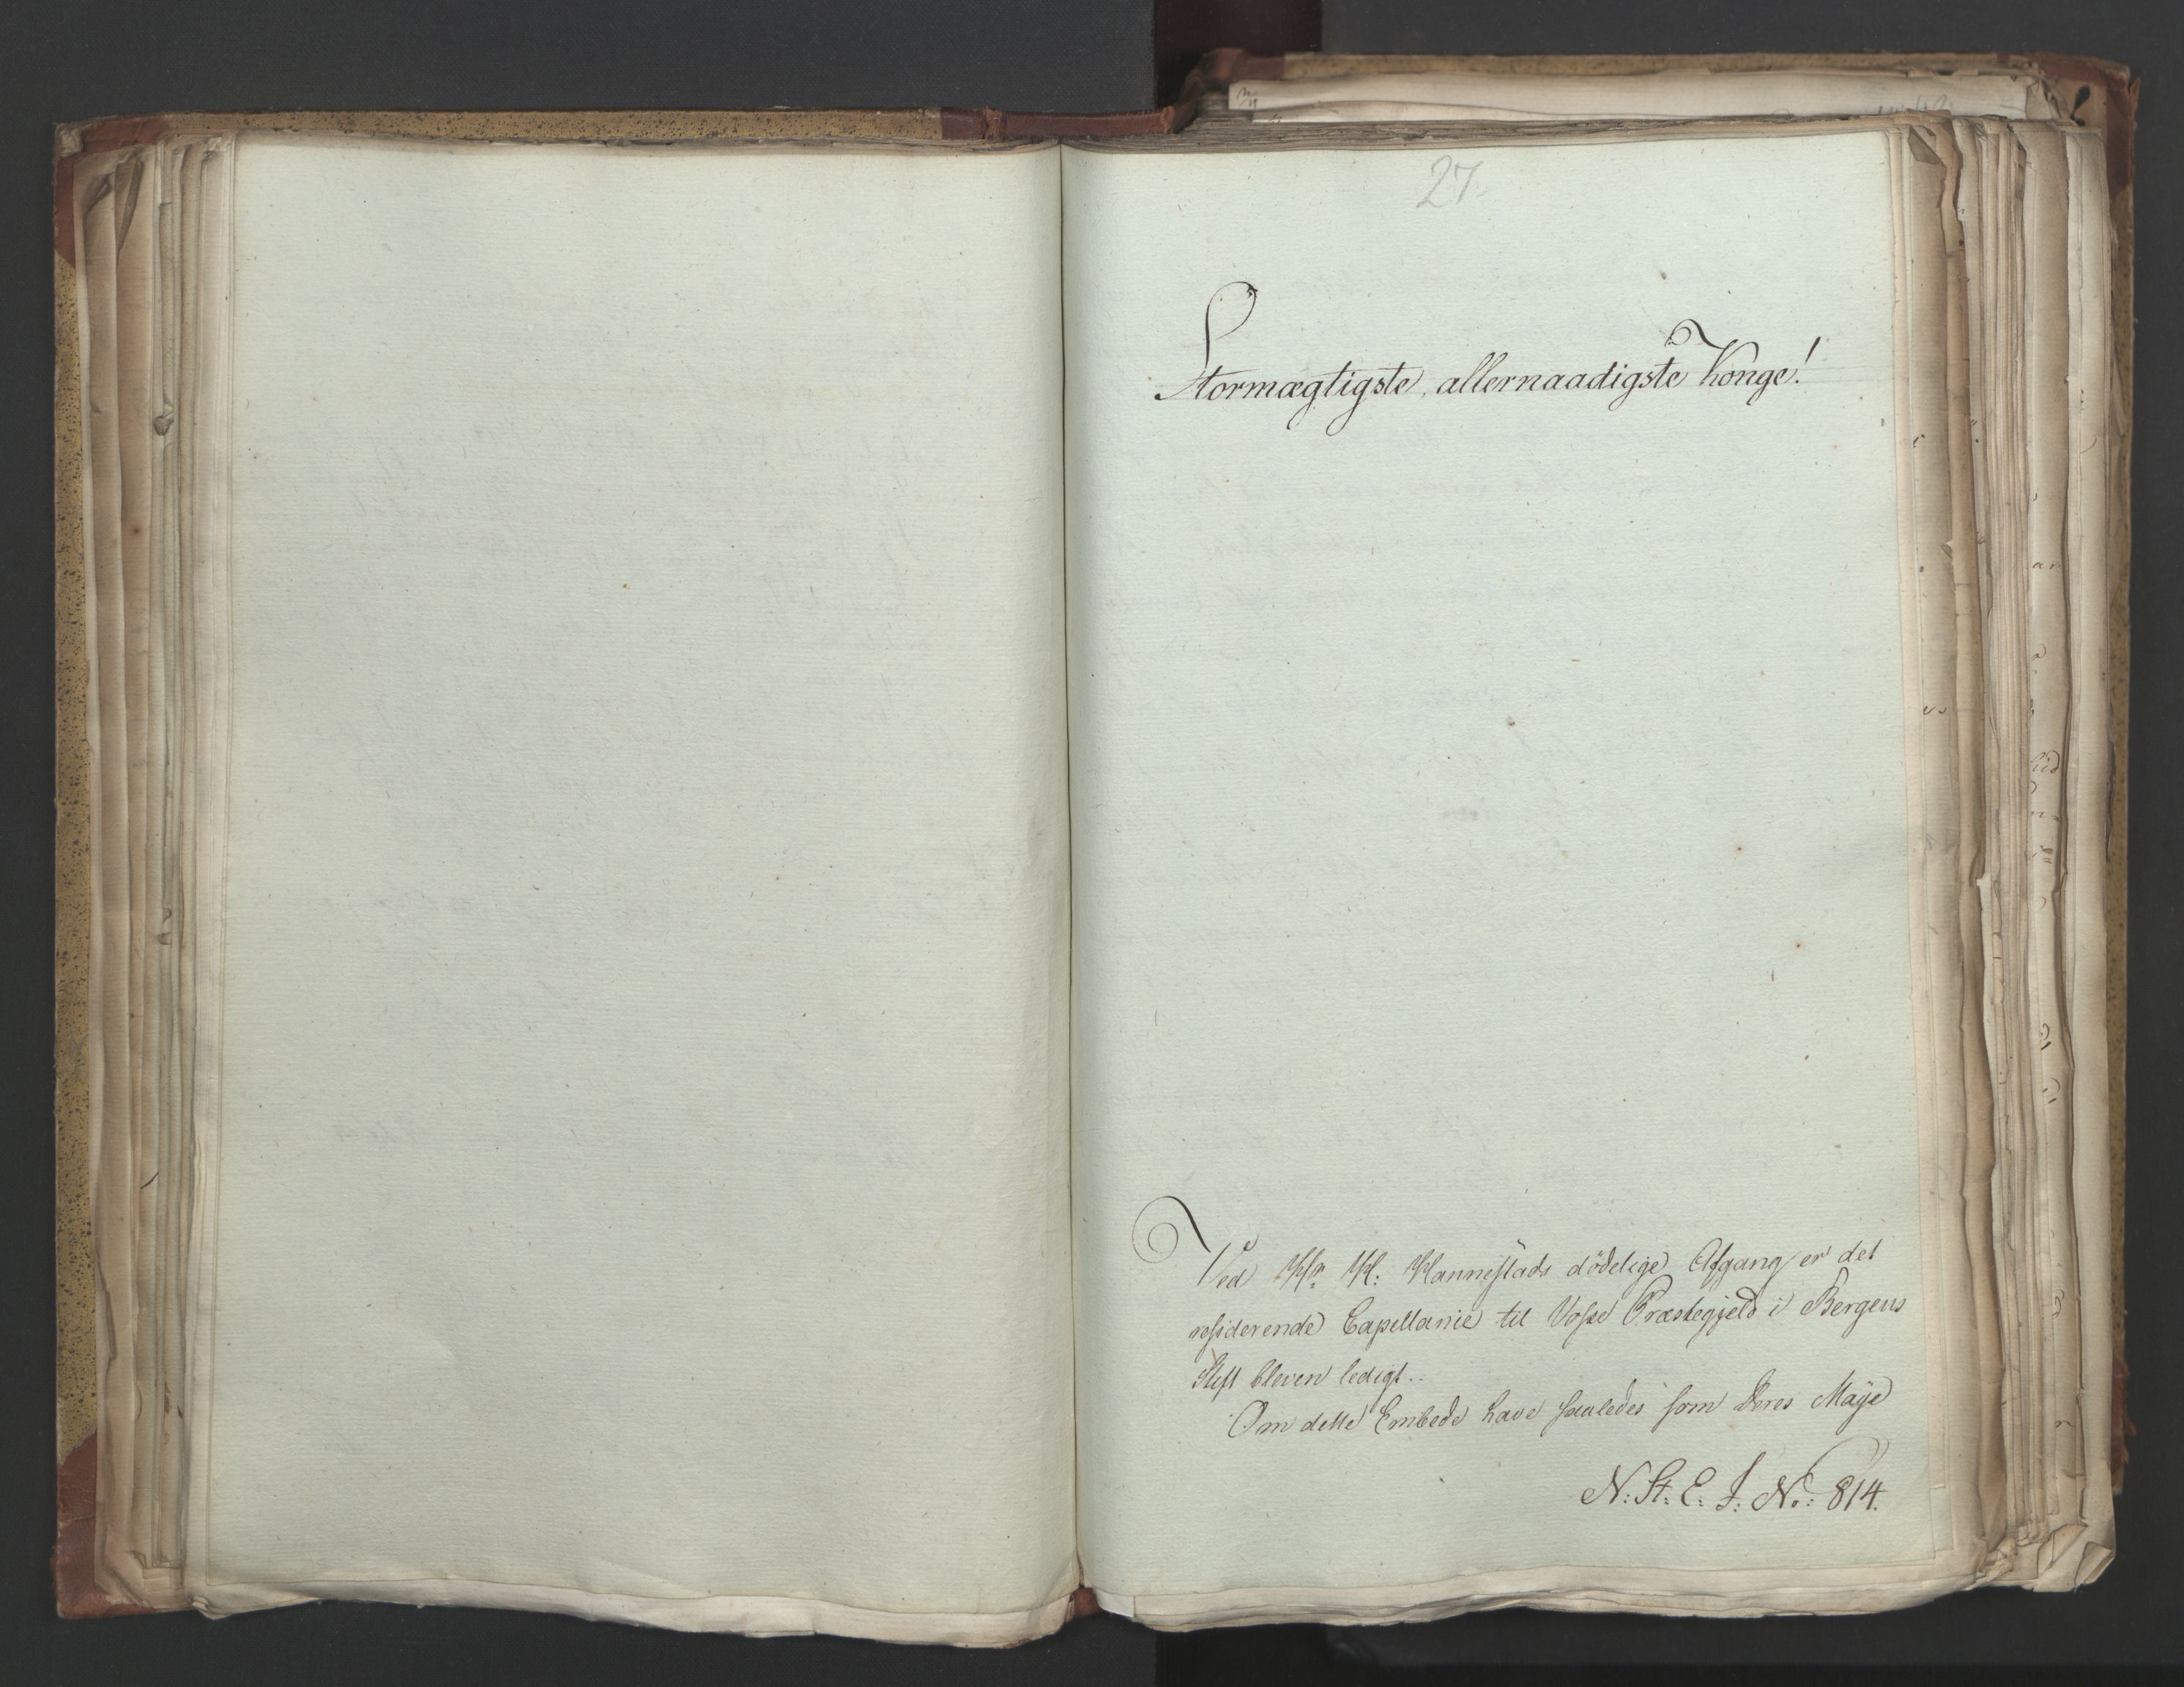 27.
Stormægtigste, allernaadigste Konge!
Ved Hr. H: Hannestads dödelige Afgang er det
residerende Capellanie til Vosse Præstegjeld i Bergens
Stift bleven ledigt.
Om dette Embede have saaledes som Deres Maj
N: St: E. J: No: 814.